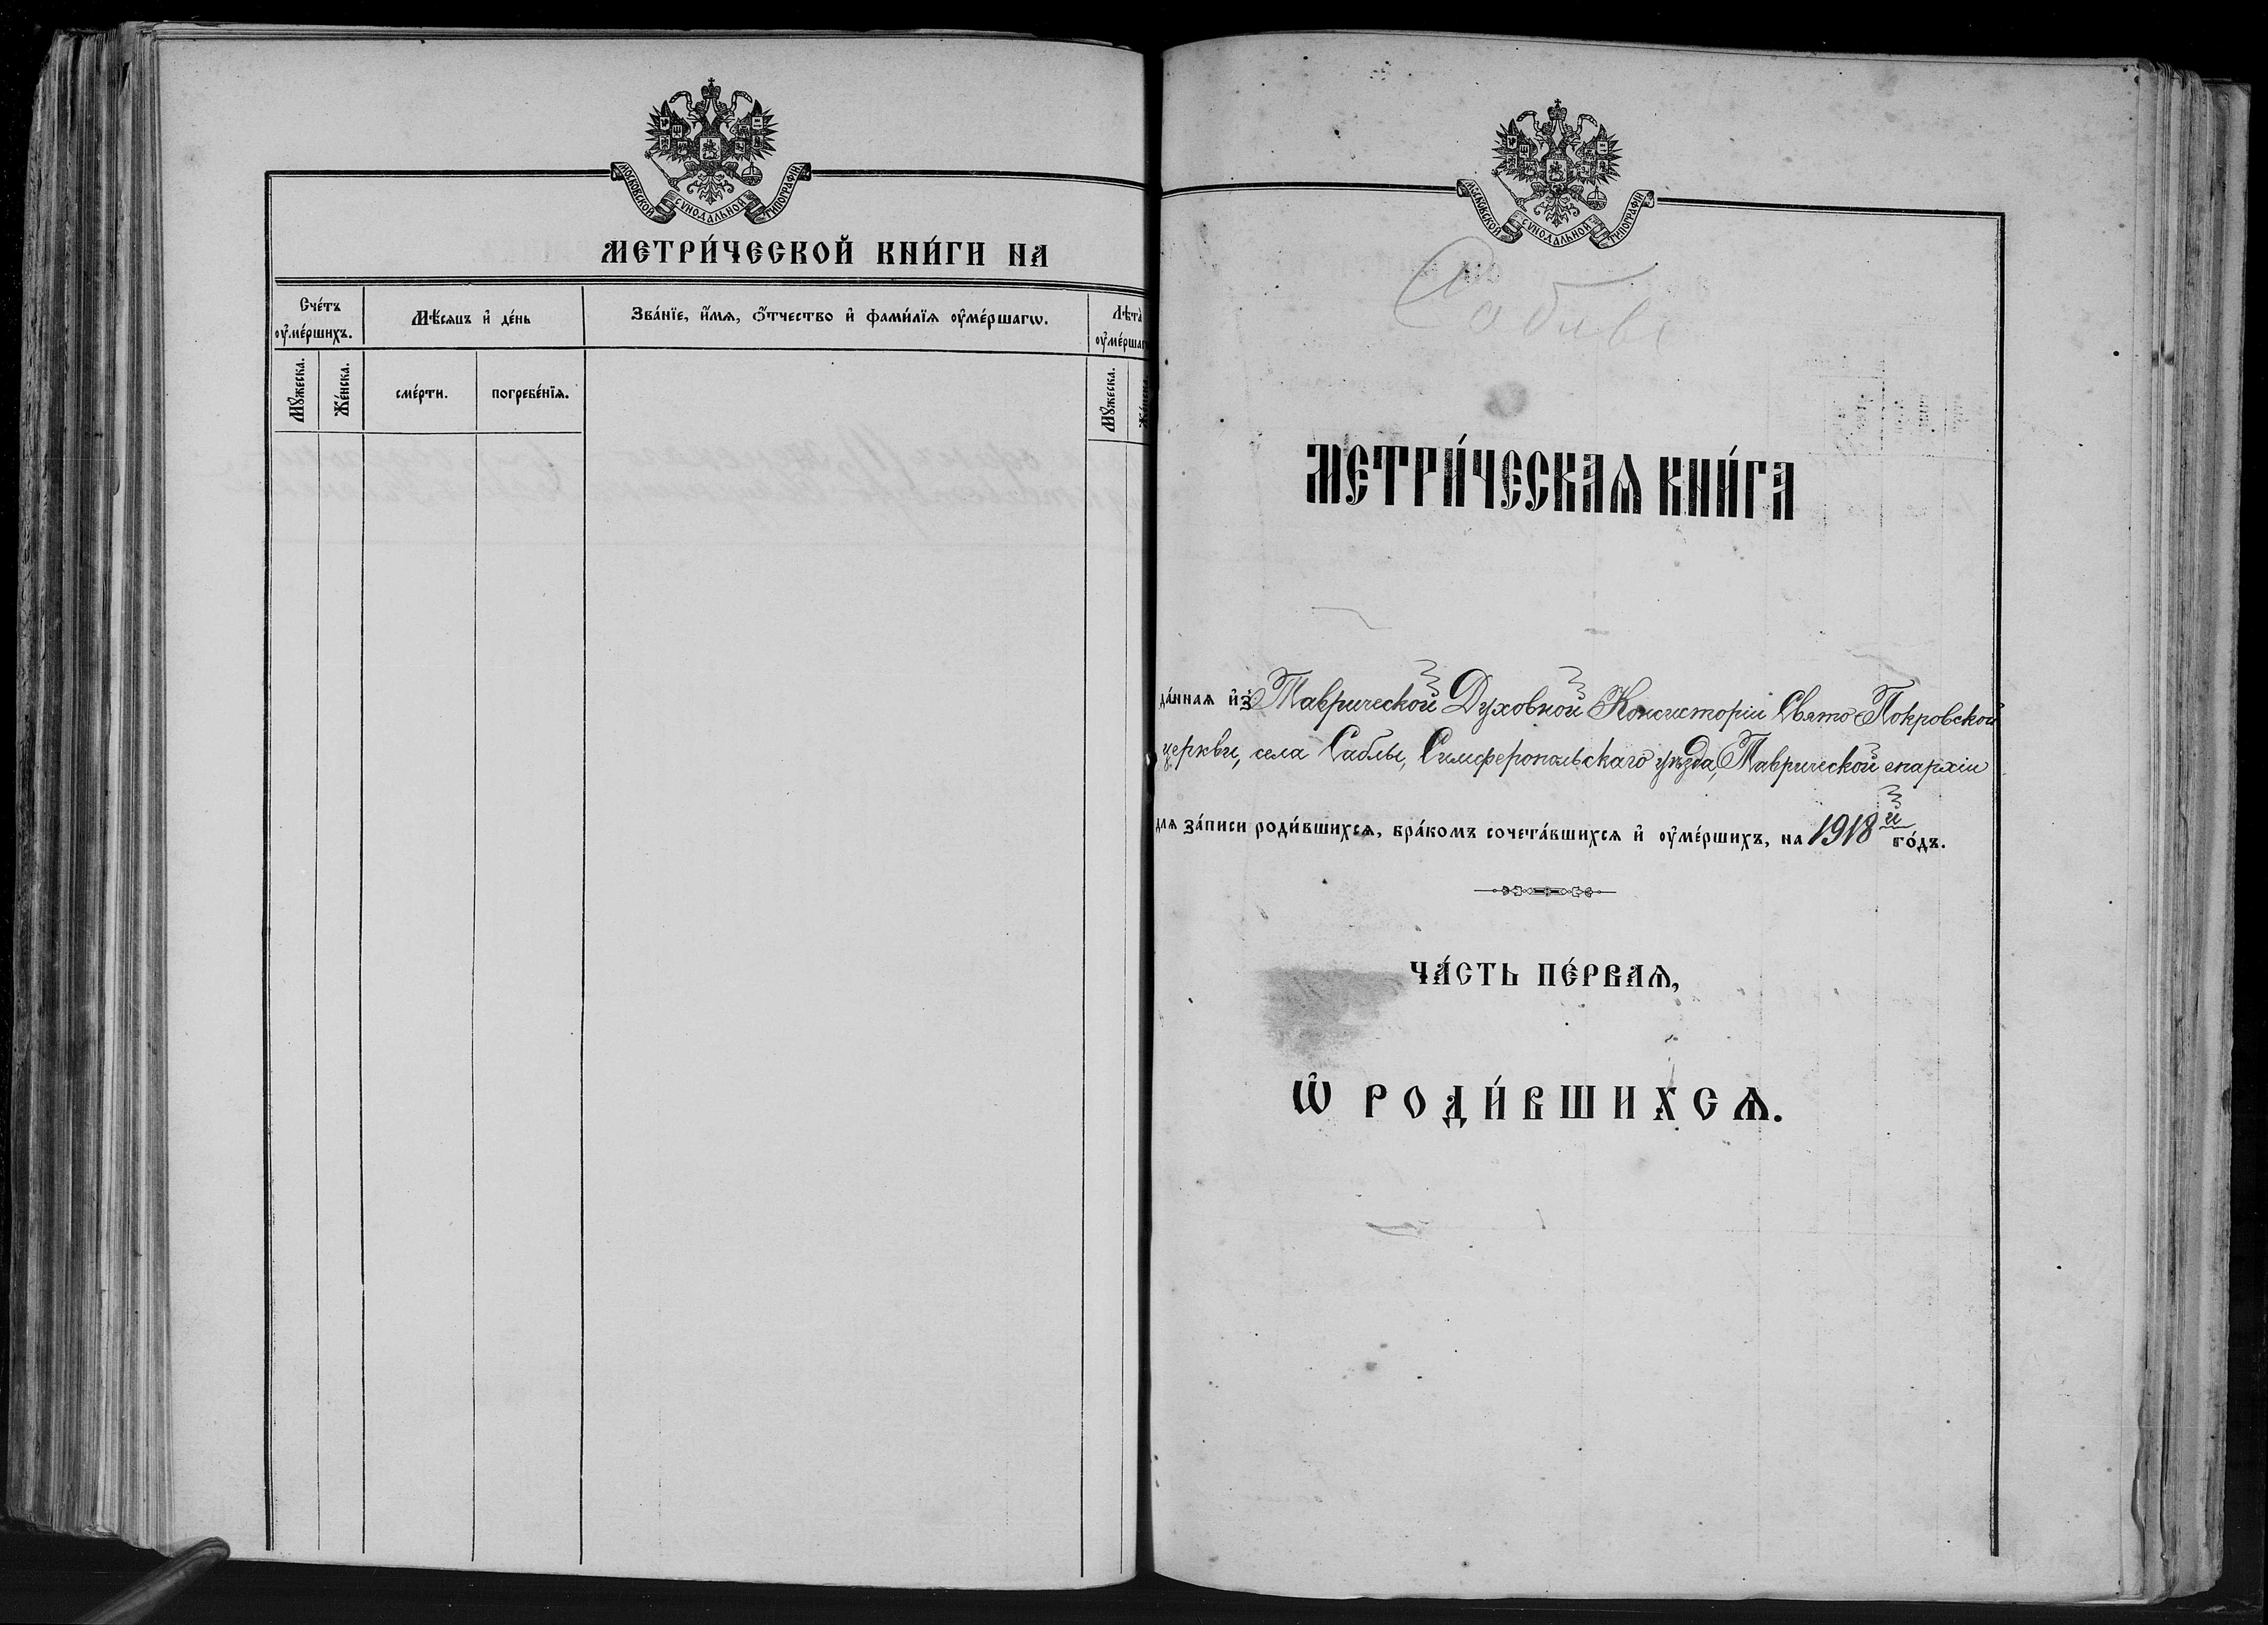 МОСКОВСКОЙ СѴНОДАЛЬНОЙ ТИПОГРАФІИ.
МЕТРИ́ЧЕСКОЙ КНИ́ГИ НА
Сче́тъ оу҆ме́ршихъ.
Мѣ́сяцъ и҆ де́нь
Зва́нїе, и҆́мѧ, ѻ҆́тчество и҆ фами́лїѧ оу҆ме́ршагѡ.
Лѣ́та
Мꙋ́жеска.
Же́нска.
сме́рти.
погребе́нїѧ.
Мꙋ́жеска.
МОСКОВСКОЙ СѴНОДАЛЬНОЙ ТИПОГРАФІИ
Саблы
МЕТРИ́ЧЕСКАѦ КНИ́ГА
да́ннаѧ и҆з̾ Таврической Духовной Консисторіи Свято Покровской
церкви, села Саблы, Симферопольскаго уѣзда, Таврической епархіи
для за́писи роди́вшихсѧ, бра́комъ сочета́вшихсѧ и҆ оу҆ме́ршихъ, на 1918й го́дъ.
ЧА́СТЬ ПЕ́РВАѦ,
Ѡ҆ РОДИ́ВШИХСѦ.